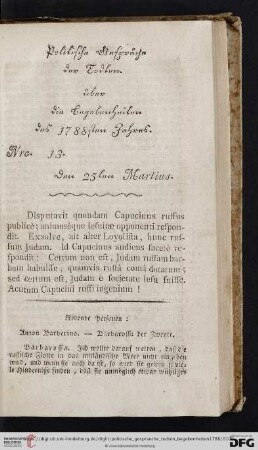 Politische Gespräche
der Todten
über
die Begebenheiten
des 1788sten Jahres.
Nro. 13.
Den 25ten Martius.
Disputavit quondam Capucinus ruffus
publice; animusque jesuitæ opponenti respon-
dit. Exsolve, ait alter Loyolista, hunc ruf-
fum Judam. Id Capucinus audiens facete re-
spondit: Certum non est, Judam ruffam bar-
bam habuisse, quamvis ruffa comà dicatur;
sed certum est, Judam e societate Jesu fuisse.
Acutum Capucini ruffi ingenium!
Redende Personen:
Anton Barberino. — Barbarossa der Zweyte.
Barbarossa. Ich wollte darauf wetten, daß die
russische Flotte in das mittländische Meer nicht
und wenn sie auch da ist, so
Hindernisse finden, daß sie unmöglich etwas wichtiges
DFG